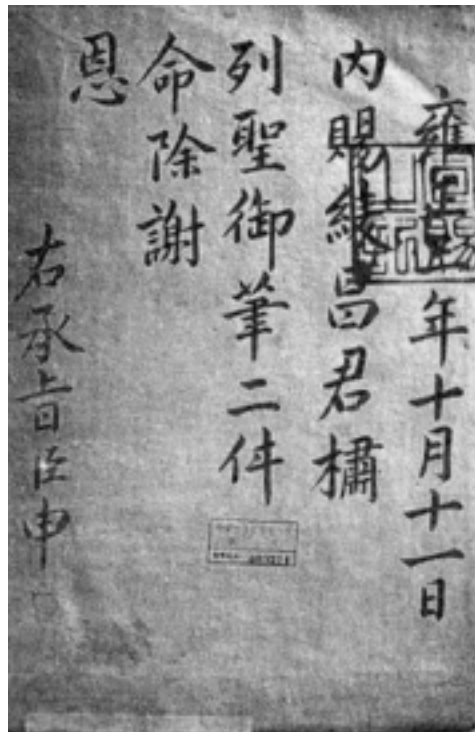 雍正年十月十一日
內賜綾昌君橚
列聖御筆二件
命除謝
恩
右承旨臣申